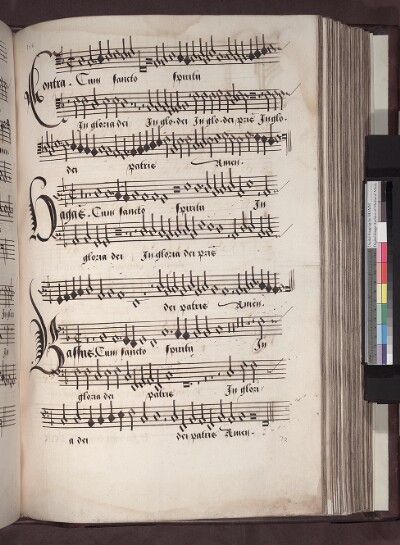 Contra. Cum sancto spiritu
In gloria dei In glo-dei In glo-dei pris Inglo-
dei patris Amen.
Bassus. Cum sancto spiritu In
gloria dei In gloria dei pris
dei patris Amen.
Bassus. Cum sancto spiritu In
gloria dei patris In glori
a dei dei patris Amen.